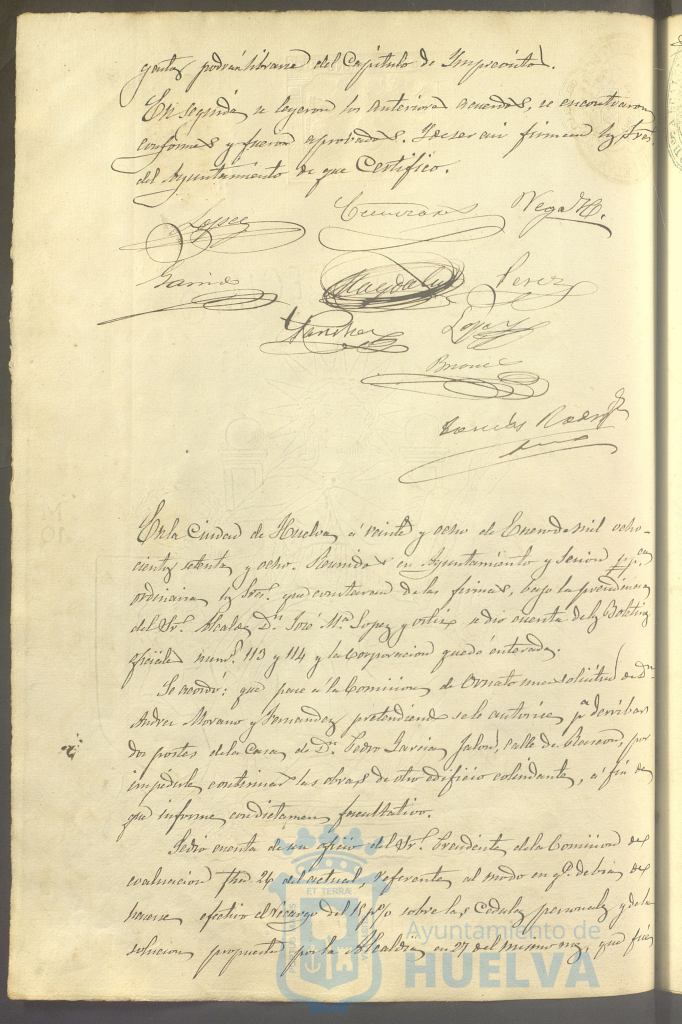 gentes podrán librarse del Capítulo de Imprevistos.
En seguida se leyeron los anteriores acuerdos, se encontraron
conformes y fueron aprobados. Y de ser así firman los Sres.
del Ayuntamiento de que Certifico.
Lopez
Vega
Garcia
Magdalena
Perez
Sanchez
Lopez
En la Ciudad de Huelva á veinte y ocho de Enero de mil ocho-
cientos setenta y ocho. Reunidos en Ayuntamiento y sesion
ordinaria los Sres. que constaran de las firmas, bajo la presidencia
del Sr. Alcalde Dn. José Ma. Lopez y Ortiz se dió cuenta de los Boletines
oficiales nums. 113 y 114 y la Corporacion quedó enterada.
Se acordó: que pase á la Comision de Ornato una solicitud de Dn.
Andres Morano y Fernandez pretendiendo se le autorice pa. derribar
dos postes de la Casa de Dn. Pedro Garcia Jalon, calle de Rascon, por
impedirle continuar las obras de otro edificio colindante, á fin de
que informe con dictamen facultativo.
Se dió cuenta de un oficio del Sr. Presidente de la Comision de
evaluacion fha. 26 del actual, referente al modo en q. debia de
hacerse efectivo el recargo del 15 p% sobre las Cedulas personales y de la
solucion propuesta por la Alcaldia en 27 del mismo mes, que fué
ET TERRA
Ayuntamiento de
HUELVA